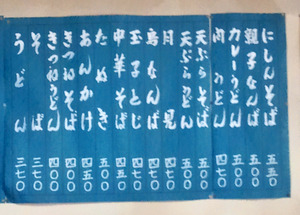 にしんそば 五五〇
親子なんば 五〇〇
カレーうどん 五〇〇
肉うどん 四七〇
天ぷらそば 五〇〇
天ぷらうどん 五〇〇
月見 四七〇
鳥なんば 四七〇
玉子とじ 四七〇
中華そば 四五〇
たぬき 四〇〇
あんかけ 四五〇
きつねそば 四〇〇
きつねうどん 四〇〇
そば 三七〇
うどん 三七〇